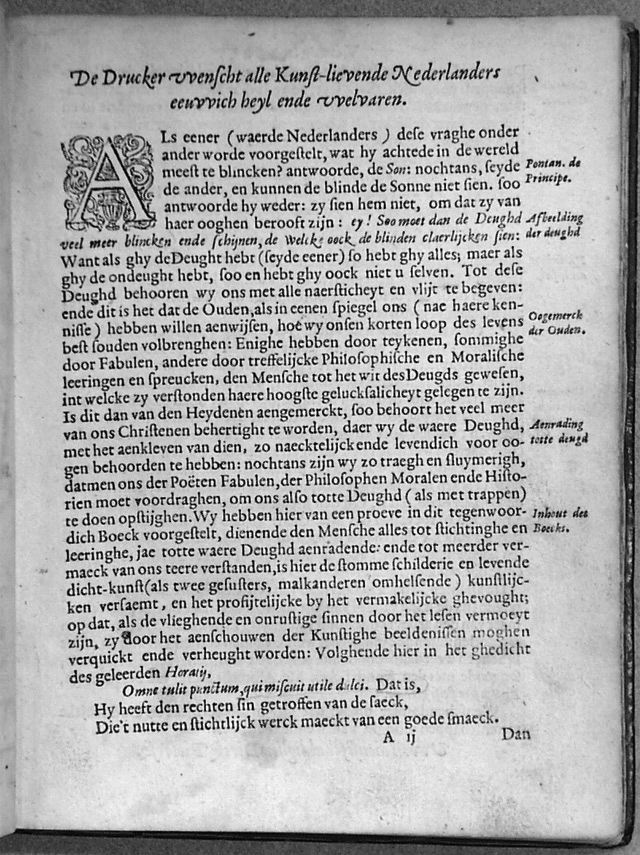 De Drucker vvenscht alle Kunst-lievende Nederlanders
eeuvvich heyl ende vvelvaren.
ALs eener (waerde Nederlanders) dese vraghe onder
ander worde voorgestelt, wat hy achtede in de wereld
meest te blincken? antwoorde, de Son: nochtans, seyde
de ander, en kunnen de blinde de Sonne niet sien. soo
antwoorde hy weder: zy sien hem niet, om dat zy van
haer ooghen berooft zijn: ey! Soo moet dan de Deughd
veel meer blincken ende schijnen, de Welcke oock de blinden claerlijcken sien:
Want als ghy de Deught hebt (seyde eener) so hebt ghy alles; maer als
ghy de ondeught hebt, soo en hebt ghy oock niet u selven. Tot dese
Deughd behooren wy ons met alle naersticheyt en vlijt te begeven:
ende dit is het dat de Ouden, als in eenen spiegel ons (nae haere ken-
nisse) hebben willen aenwijsen, hoe wy onsen korten loop des levens
best souden volbrenghen: Enighe hebben door teykenen, sommighe
door Fabulen, andere door treffelijcke Philosophische en Moralische
leeringen en spreucken, den Mensche tot het wit des Deugds gewesen,
int welcke zy verstonden haere hooghste gelucksalicheyt gelegen te zijn.
Is dit dan van den Heydenen aengemerckt, soo behoort het veel meer
van ons Christenen behertight te worden, daer wy de waere Deughd,
met het aenkleven van dien, zo naecktelijck ende levendich voor oo-
gen behoorden te hebben: nochtans zijn wy zo traegh en sluymerigh,
datmen ons der Poëten Fabulen, der Philosophen Moralen ende Histo-
rien moet voordraghen, om ons also totte Deughd (als met trappen)
te doen opstijghen. Wy hebben hier van een proeve in dit tegenwoor-
dich Boeck voorgestelt, dienende den Mensche alles tot stichtinghe en
leeringhe, jae totte waere Deughd aenradende: ende tot meerder ver-
maeck van ons teere verstanden, is hier de stomme schilderie en levende
dicht-kunst (als twee gesusters, malkanderen omhelsende) kunstlijc-
ken versaemt, en het profijtelijcke by het vermakelijcke ghevought;
op dat, als de vlieghende en onrustige sinnen door het lesen vermoeyt
zijn, zy door het aenschouwen der Kunstighe beeldenissen moghen
verquickt ende verheught worden: Volghende hier in het ghedicht
des geleerden Horatij,
Omne tulit punctum, qui miscuit utile dulci. Dat is,
Hy heeft den rechten sin getroffen van de saeck,
Die't nutte en stichtlijck werck maeckt van een goede smaeck.
A ij Dan
Pontan. de
Principe.
Afbeelding
der deughd
Oogemerck
der Ouden.
Aenrading
totte deugd
Inhout des
Boecks.